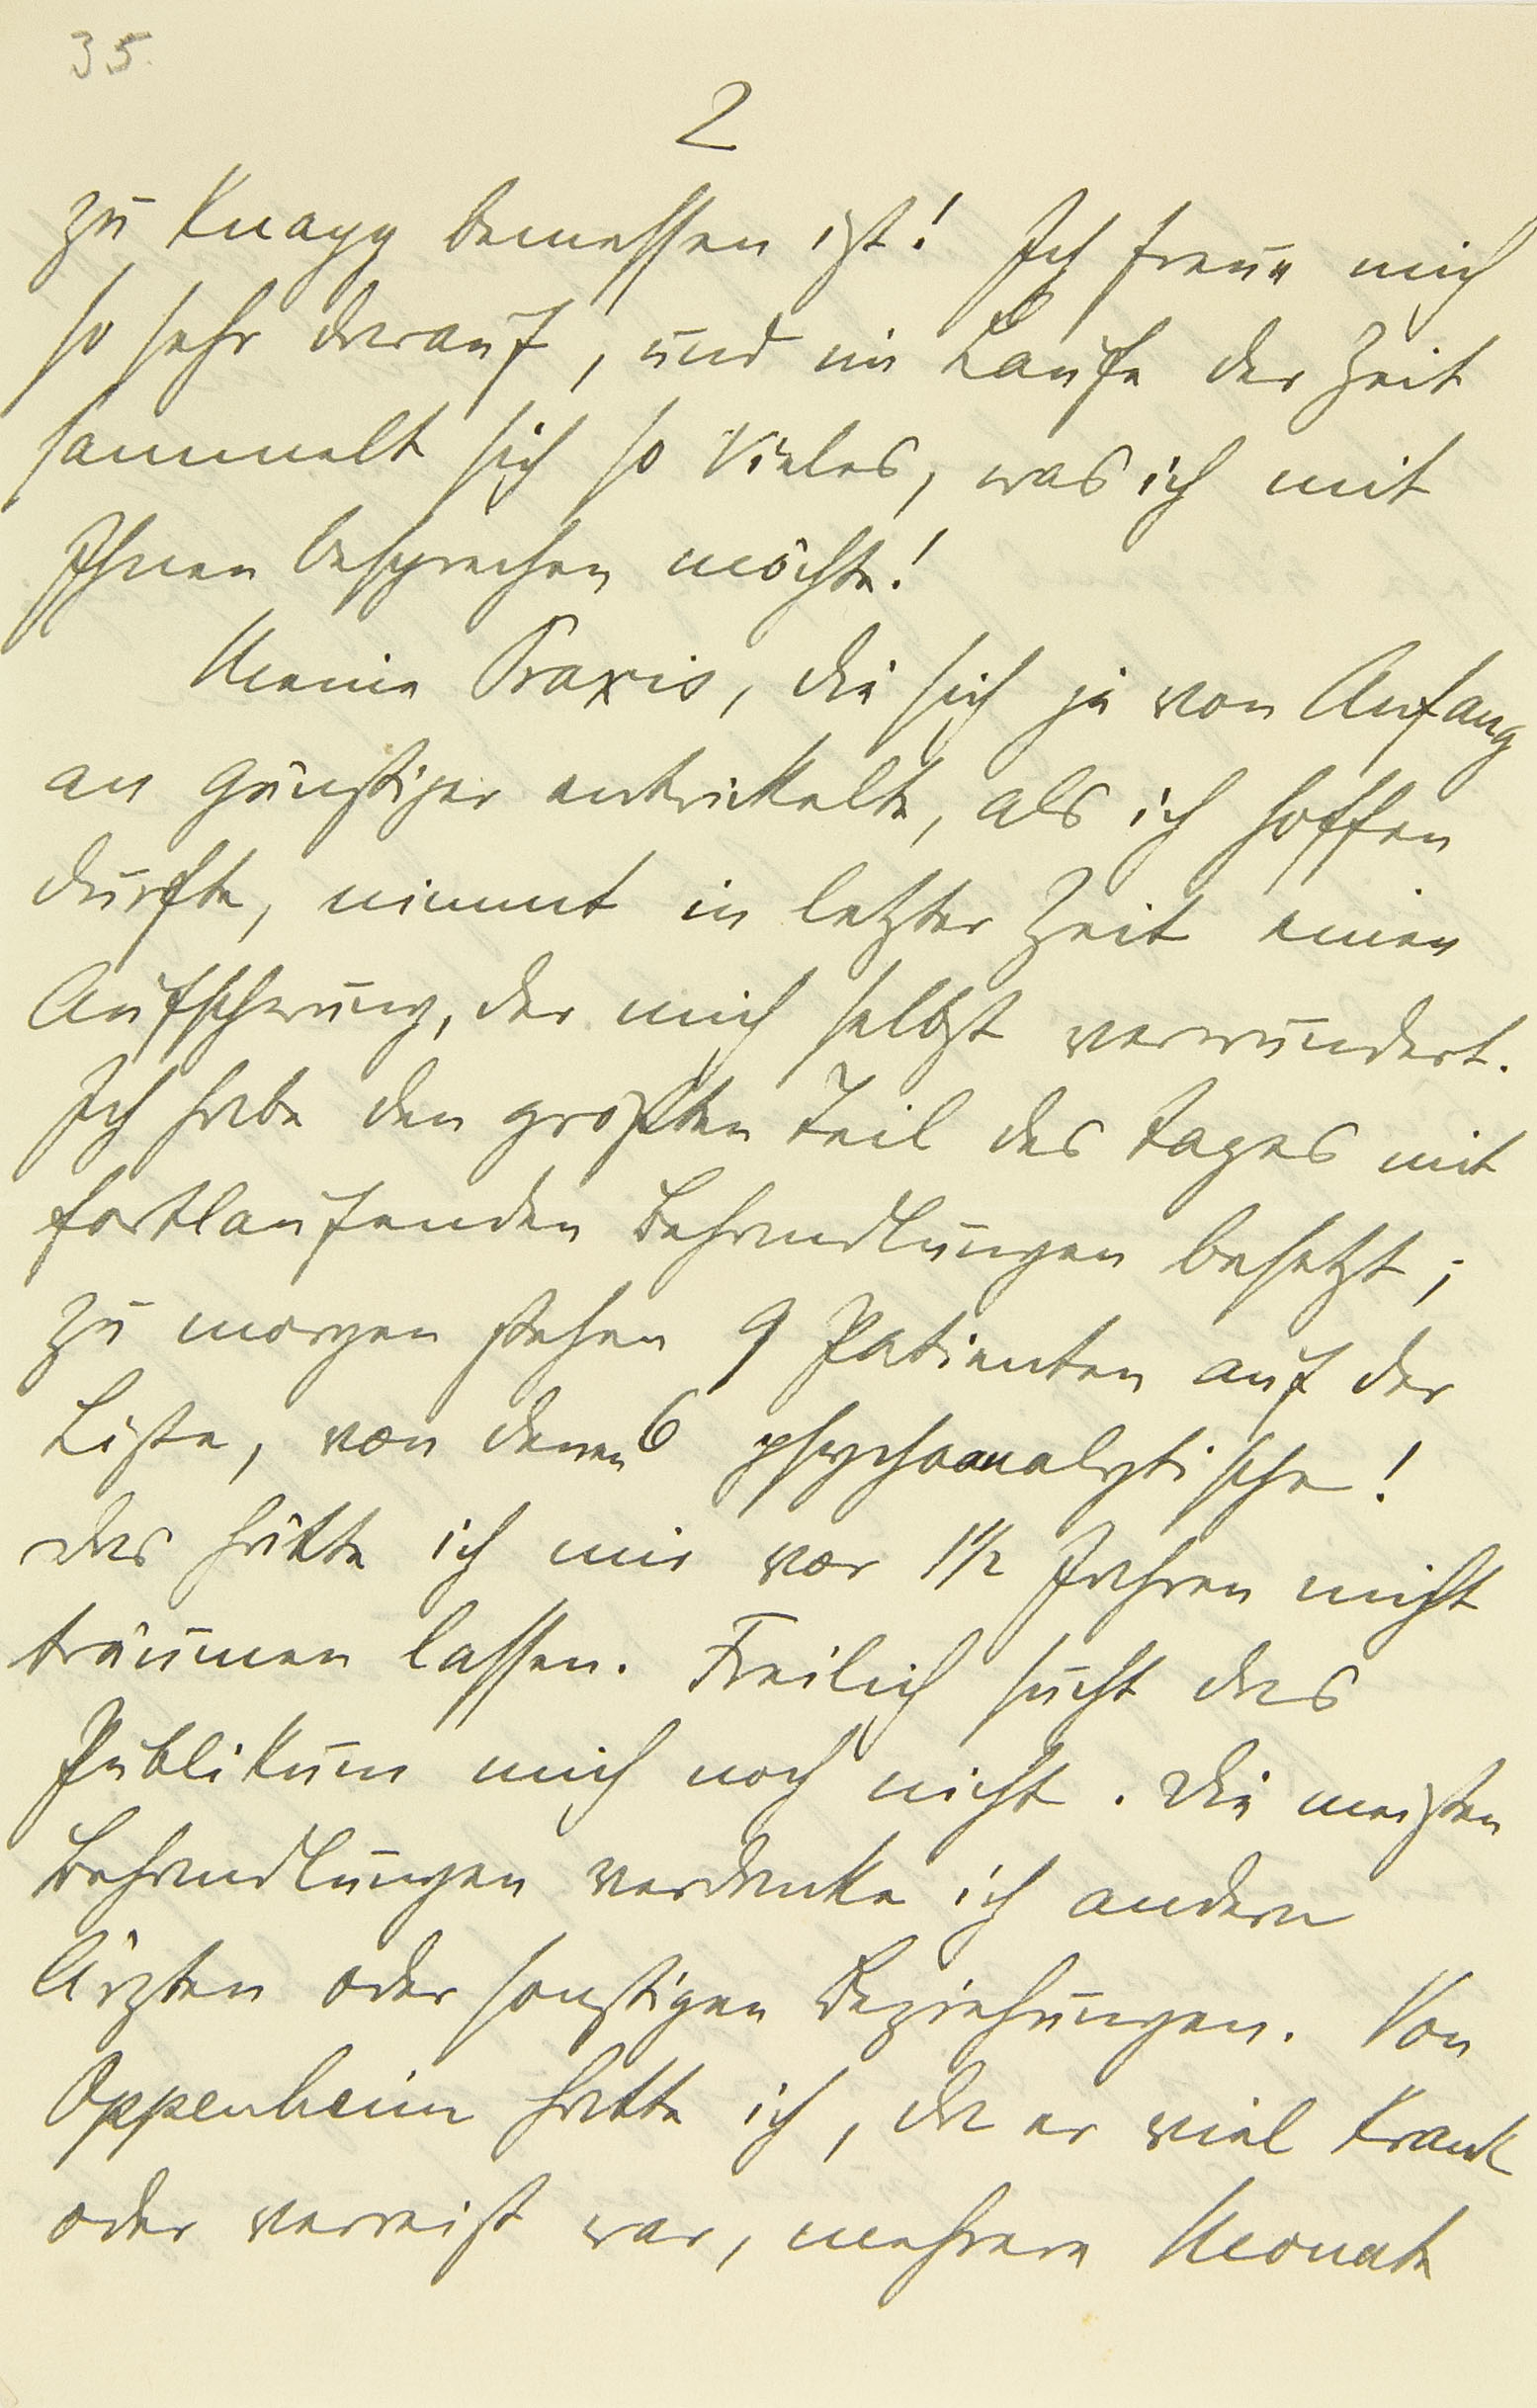 35.
2
zu knapp bemessen ist! Ich freue mich
so sehr darauf, und im Laufe der Zeit
sammelt sich so Vieles, was ich mit
Ihnen besprechen möchte!
Meine Praxis, die sich ja von Anfang
an günstiger entwickelte, als ich hoffen
durfte, nimmt in letzter Zeit einen
Aufschwung, der mich selbst verwundert.
Ich habe den größten Teil des Tages mit
fortlaufenden Behandlungen besetzt;
zu morgen stehen 9 Patienten auf der
Liste, von denen 6 psychoanalytische!
Das hätte ich mir vor 1½ Jahren nicht
träumen lassen. Freilich sucht das
Publikum mich noch nicht. Die meisten
Behandlungen verdanke ich andern
Ärzten oder sonstigen Beziehungen. Von
Oppenheim hatte ich, da er viel krank
oder verreist war, mehrere Monate